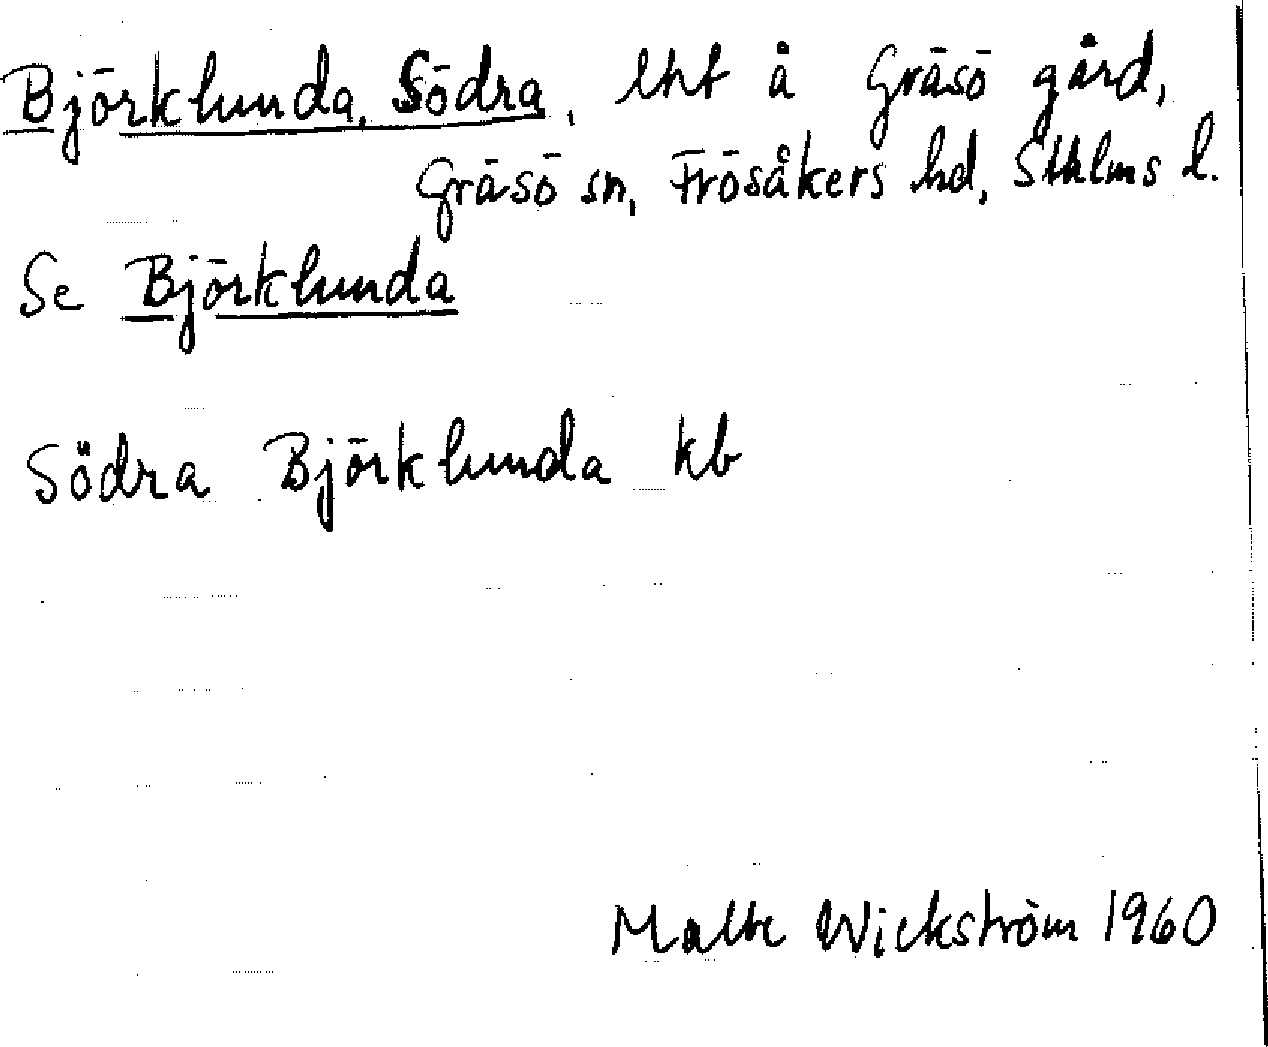 Björklunda, Södra, lht å Gräsö gård,
Gräsö sn, Frösåkers hd, Sthlms l.
Se Björklunda
Södra Björklunda kb
Malte Wickström 1960